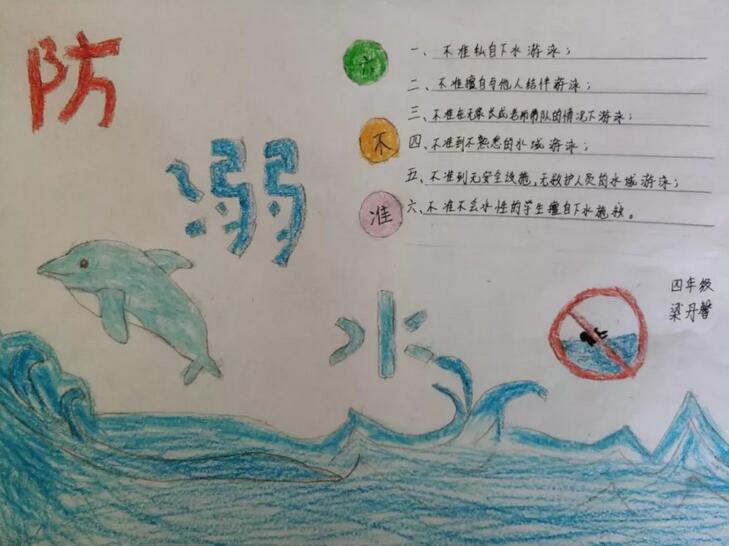 防
溺
水
六
不
准
一、不准私自下水游泳；
二、不准擅自与他人结伴游泳；
三、不准在无家长或老师带队的情况下游泳；
四、不准到不熟悉的水域游泳；
五、不准到无安全设施,无救护人员的水域游泳；
六、不准不会水性的学生擅自下水施救。
四年级
梁丹馨